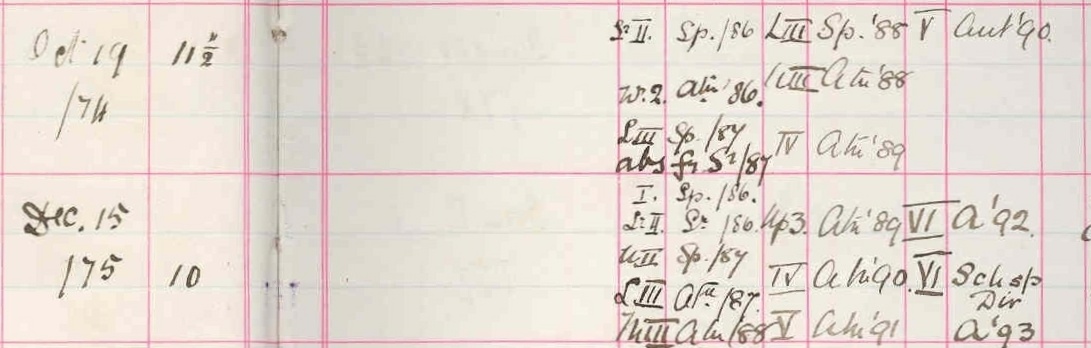 Oct 19 11½
/74
Lr II. Sp. /86 LIII Sp. '88 V Aut '90.
Ur. 2. Atn '86. UIII Atn '88
LIII Sp. /87 IV Atn '89
abs fr Sr /87
Dec. 15
/75 10
I. Sp. /86.
Lr II. Sr /86. Up 3. Atn '89 VI A '92.
UII Sp. /87
IV Atn '90. VI Schsp
LIII Atn /87. Div
UIII Atn /88 V Atn '91 A '93